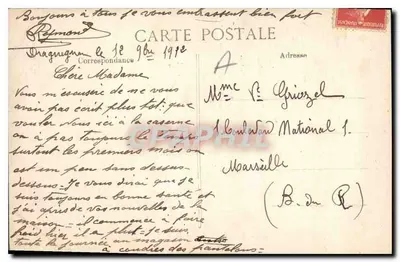 Bonjours à tous je vous embrassent bien fort
Reymond
CARTE POSTALE
Draguignan le 12 9bre 1912
Correspondance
Adresse
A
Chère Madame
Vous m'escusere de ne vous
avoir pas ecrit plus tot, que
vouler Vous ici à la caserne
on a pas toujours le temps
surtout les premiers mois on
est un peu sens dessus-
dessous - Je vous dirai que je
suis toujours en bonne santé et
j'ai apres de vos nouvelles de la
maison - il commence à faire
froid hier il a plut = je suis
toute la journée au magasin
à coudres des pantalons =
Mme Ve Griozel
Boulevard National
Marseille
(B. du R)